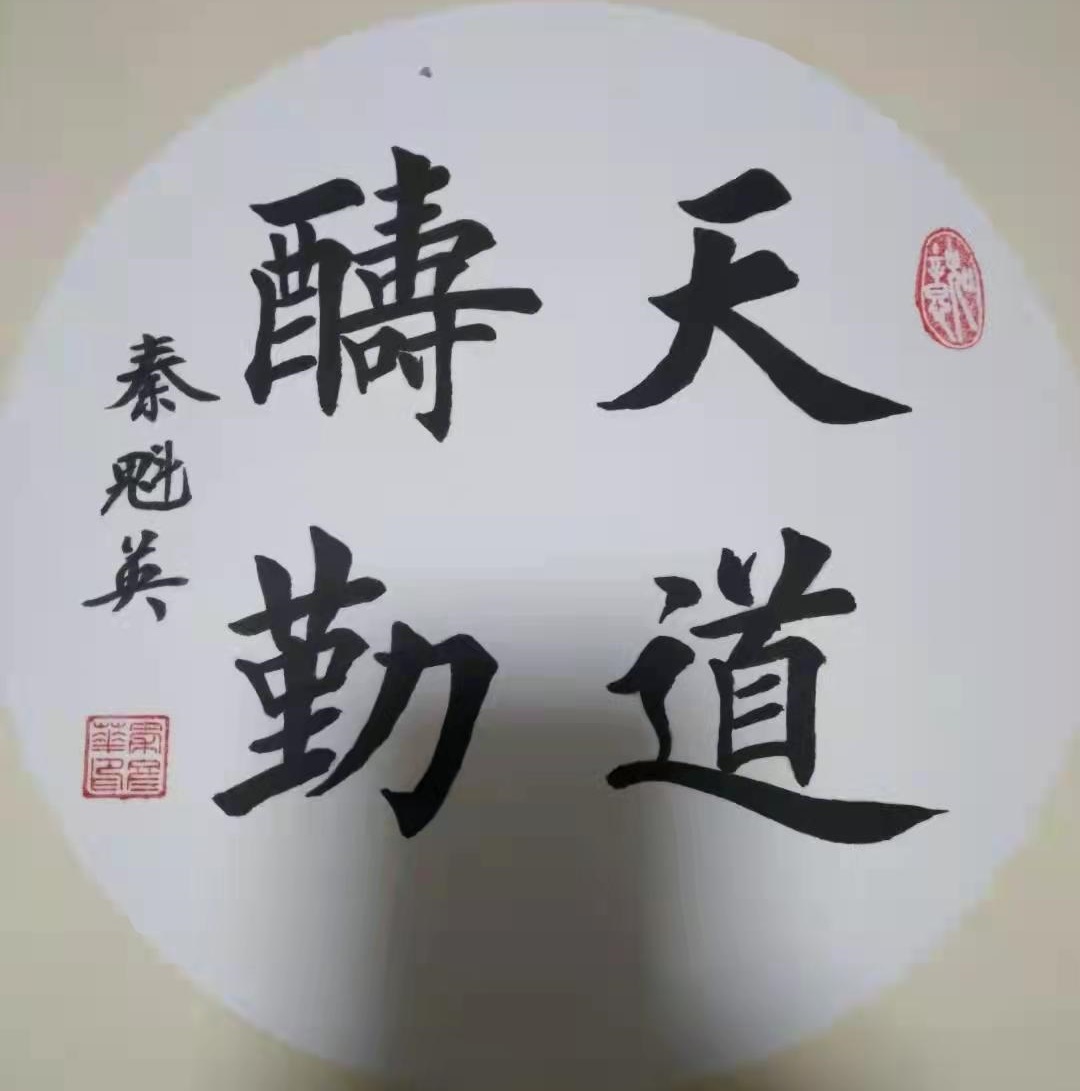 天道
醻勤
秦魁英